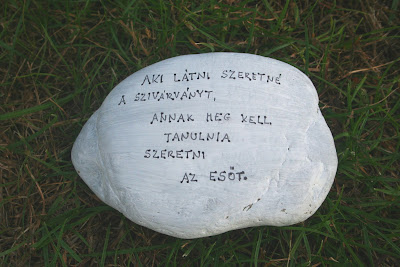 AKI LÁTNI SZERETNÉ
A SZIVÁRVÁNYT,
ANNAK MEG KELL
TANULNIA
SZERETNI
AZ ESŐT.